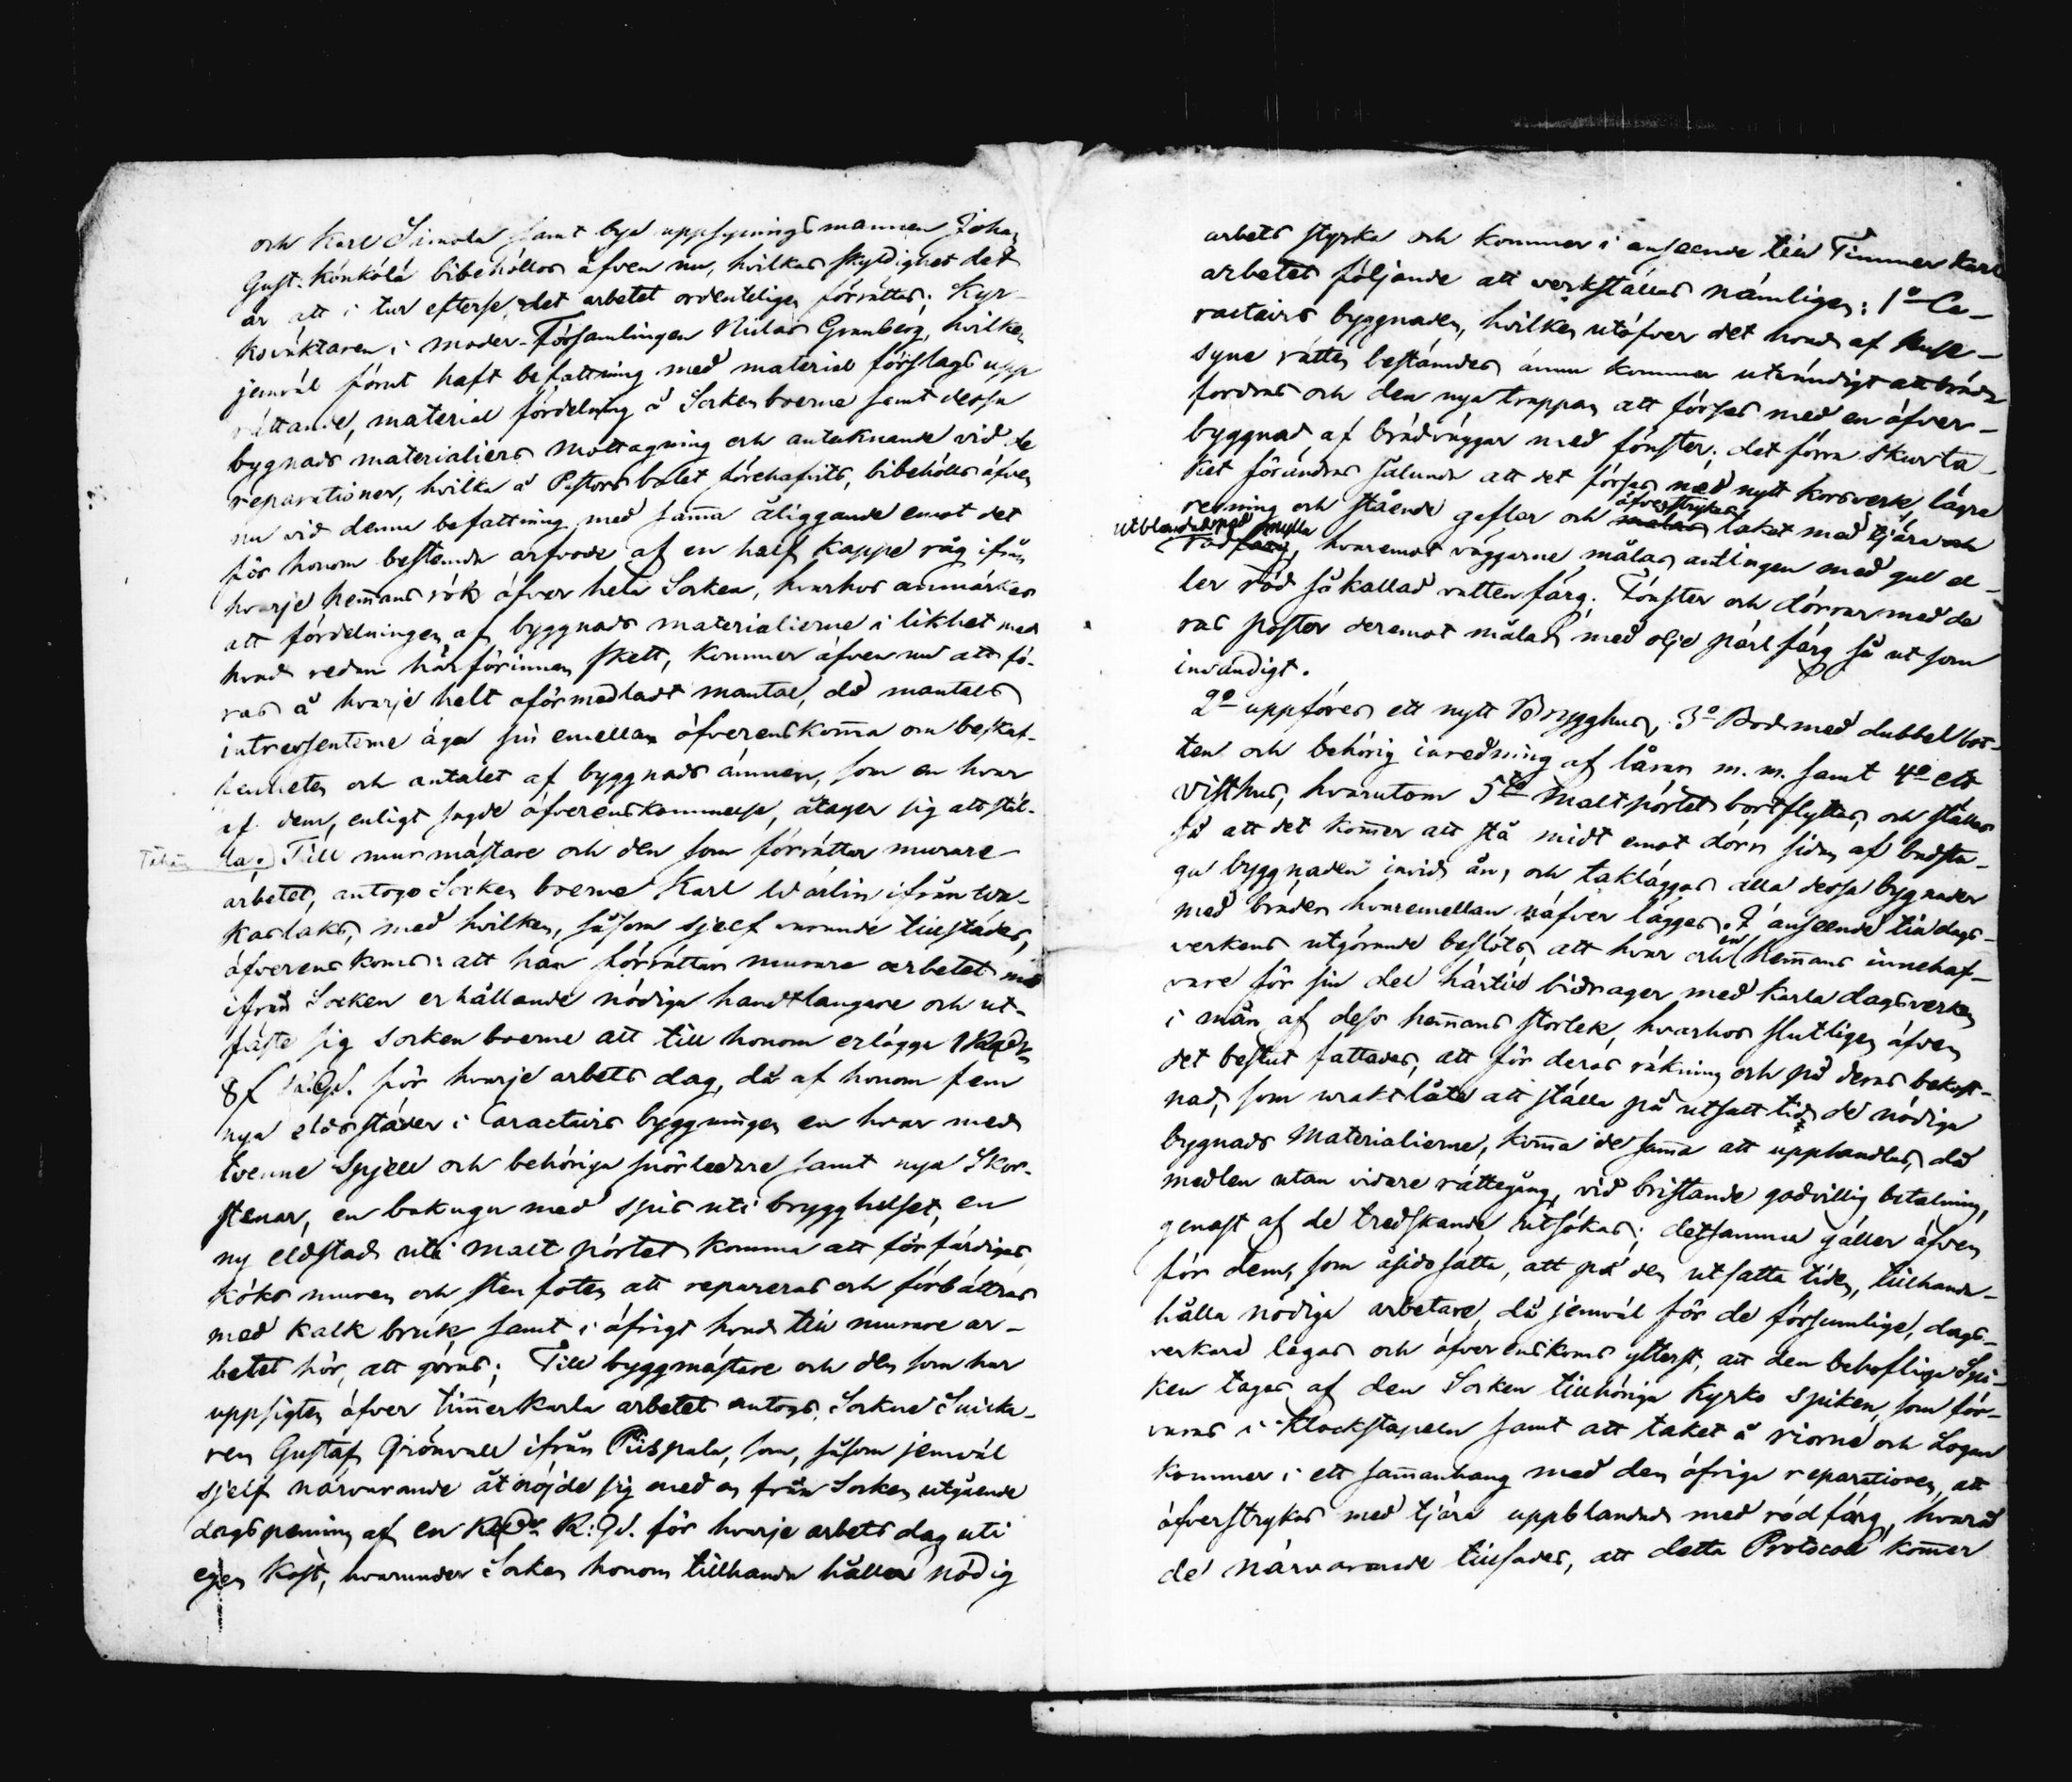 och Karl Simola samt bya uppsyningsmannen Johan
Gust: Könkölä bibehöllos äfven nu, hvilkas skyldighet det
är att i tur efterse, det arbetet ordenteligen förrättas; Kyr-
koväktaren i moder-Församlingen Niclas Granberg, hvilken
jemväl förut haft befattning med material förslags upp
rättande, material fördelning å Sockenboerne samt dessa
bygnads materialiers mottagning och antecknande vid de
reparationer, hvilka å Pastorsbolet förehafvits, bibehölls äfven
nu vid denna befattning med samma åliggande emot det
för honom bestemda arfvode af en half Kappe råg ifrån
hvarje hemmans rök öfver hela Socken, hvarhos anmärkes
att fördelningen af byggnads materialierne i likhet med
hvad redan härförinnan skett, kommer äfven nu att fö-
ras å hvarje helt oförmedladt mantal, då mantals
intressenterne äga sin emellan öfverenskomma om beskaf-
fenheten och antalet af byggnads ämnen, som en hvar
af dem, enligt sagde öfverenskommelse, åtager sig att stäl-
la. Till murmästare och den som förrättar murare
arbetet, antogo Socken boerne Karl Wärlin ifrån Wa-
karlaks, med hvilken, såsom sjelf varande tillstädes,
öfverenskoms: att han förrättar murare arbetet med
ifrån Socken erhållande nödiga handtlangare och ut-
fäste sig sockenboerne att till honom erlägga 1 Rdr
8 s R:Gd. för hvarje arbets dag, då af honom fem
nya eldstäder i Caractairs byggningen en hvar med
tvenne Spjell och behöriga snörledare samt nya Skor-
stenar, en bakugn med spis uti brygghuset, en
ny eldstad uti malt pörtet komma att förfärdigas,
köks muren och sten foten att repareras och förbättras
med Kalk bruk samt i öfrigt hvad till murare ar-
betet hör, att göras; Till byggmästare och den som har
uppsigten öfver timmerkarla arbetet antogs, Sockne Snicka-
ren Gustaf Grönvall ifrån Piispala, som, såsom jemväl
sjelf närvarande åtnöjde sig med en från Socken utgående
dagspenning af en Rdr R:Gd. för hvarje arbets dag uti
egen Kost, hvarunder Socken honom tillhanda håller nödig
arbets styrka och kommer i anseende till Timmer karl
arbetet följande att verkställas nämligen: 1o Ca-
ractairs byggnaden, hvilken utöfver det hvad af Huse-
syne rätten bestämdes ännu kommer utvändigt att bräd-
fordras och den nya trappan att förses med en öfver-
byggnad af brädväggar med fönster; det förra Skurta-
ket förändras sålunda att det förses med nytt korsverk, lägre
resning och stående geflar och öfverstrykes taket med tjära och
utblandning mylla
Röd färg, hvaremot väggarne målas antingen med gul el-
ler röd såkallad vattenfärg; Fönster och dörrar med de
ras poster deremot målas med olje pärlfärg så ut som
invändigt.
2o uppföres ett nytt Brygghus, 3o Bod med dubbel bot-
ten och behörig inredning af lårar m. m. samt 4o ett
visthus, hvarutom 5to maltpörtet bortflyttas, och ställes
så att det kommer att stå midt emot dörr sidan af badstu-
gu byggnaden invid ån, och takläggas alla dessa bygnader
med bräder hvaremellan näfver lägges. I anseende till dags-
verkens utgörande beslöts, att hvar och en hemmans innehaf-
vare för sin del härtill bidrager med Karla dagsverken
i mån af dess hemmans storlek, hvarhos slutligen äfven
det beslut fattades, att för deras räkning och på deras bekost-
nad, som uraktlåta att ställa på utsatt tid de nödiga
bygnads Materialierne, komma desamma att upphandlas, då
medlen utan vidare rättegång, vid bristande godvillig betalning,
genast af de tredskande utsökas; detsamma gäller äfven
för dem, som åsidosätta, att på den utsatta tiden, tillhanda-
hålla nödiga arbetare, då jemväl för de försumlige, dags-
verkare legas och öfverenskoms ytterst, att den behöfliga Spi-
ken tages af den Socken tillhöriga Kyrko spiken, som för-
varas i Klockstapeln samt att taket å riorne och Logen
kommer i ett sammanhang med den öfriga reparationen, att
öfverstrykas med tjära uppblandad med rödfärg, hvarå
de närvarande tillsades, att detta Protocoll kommer